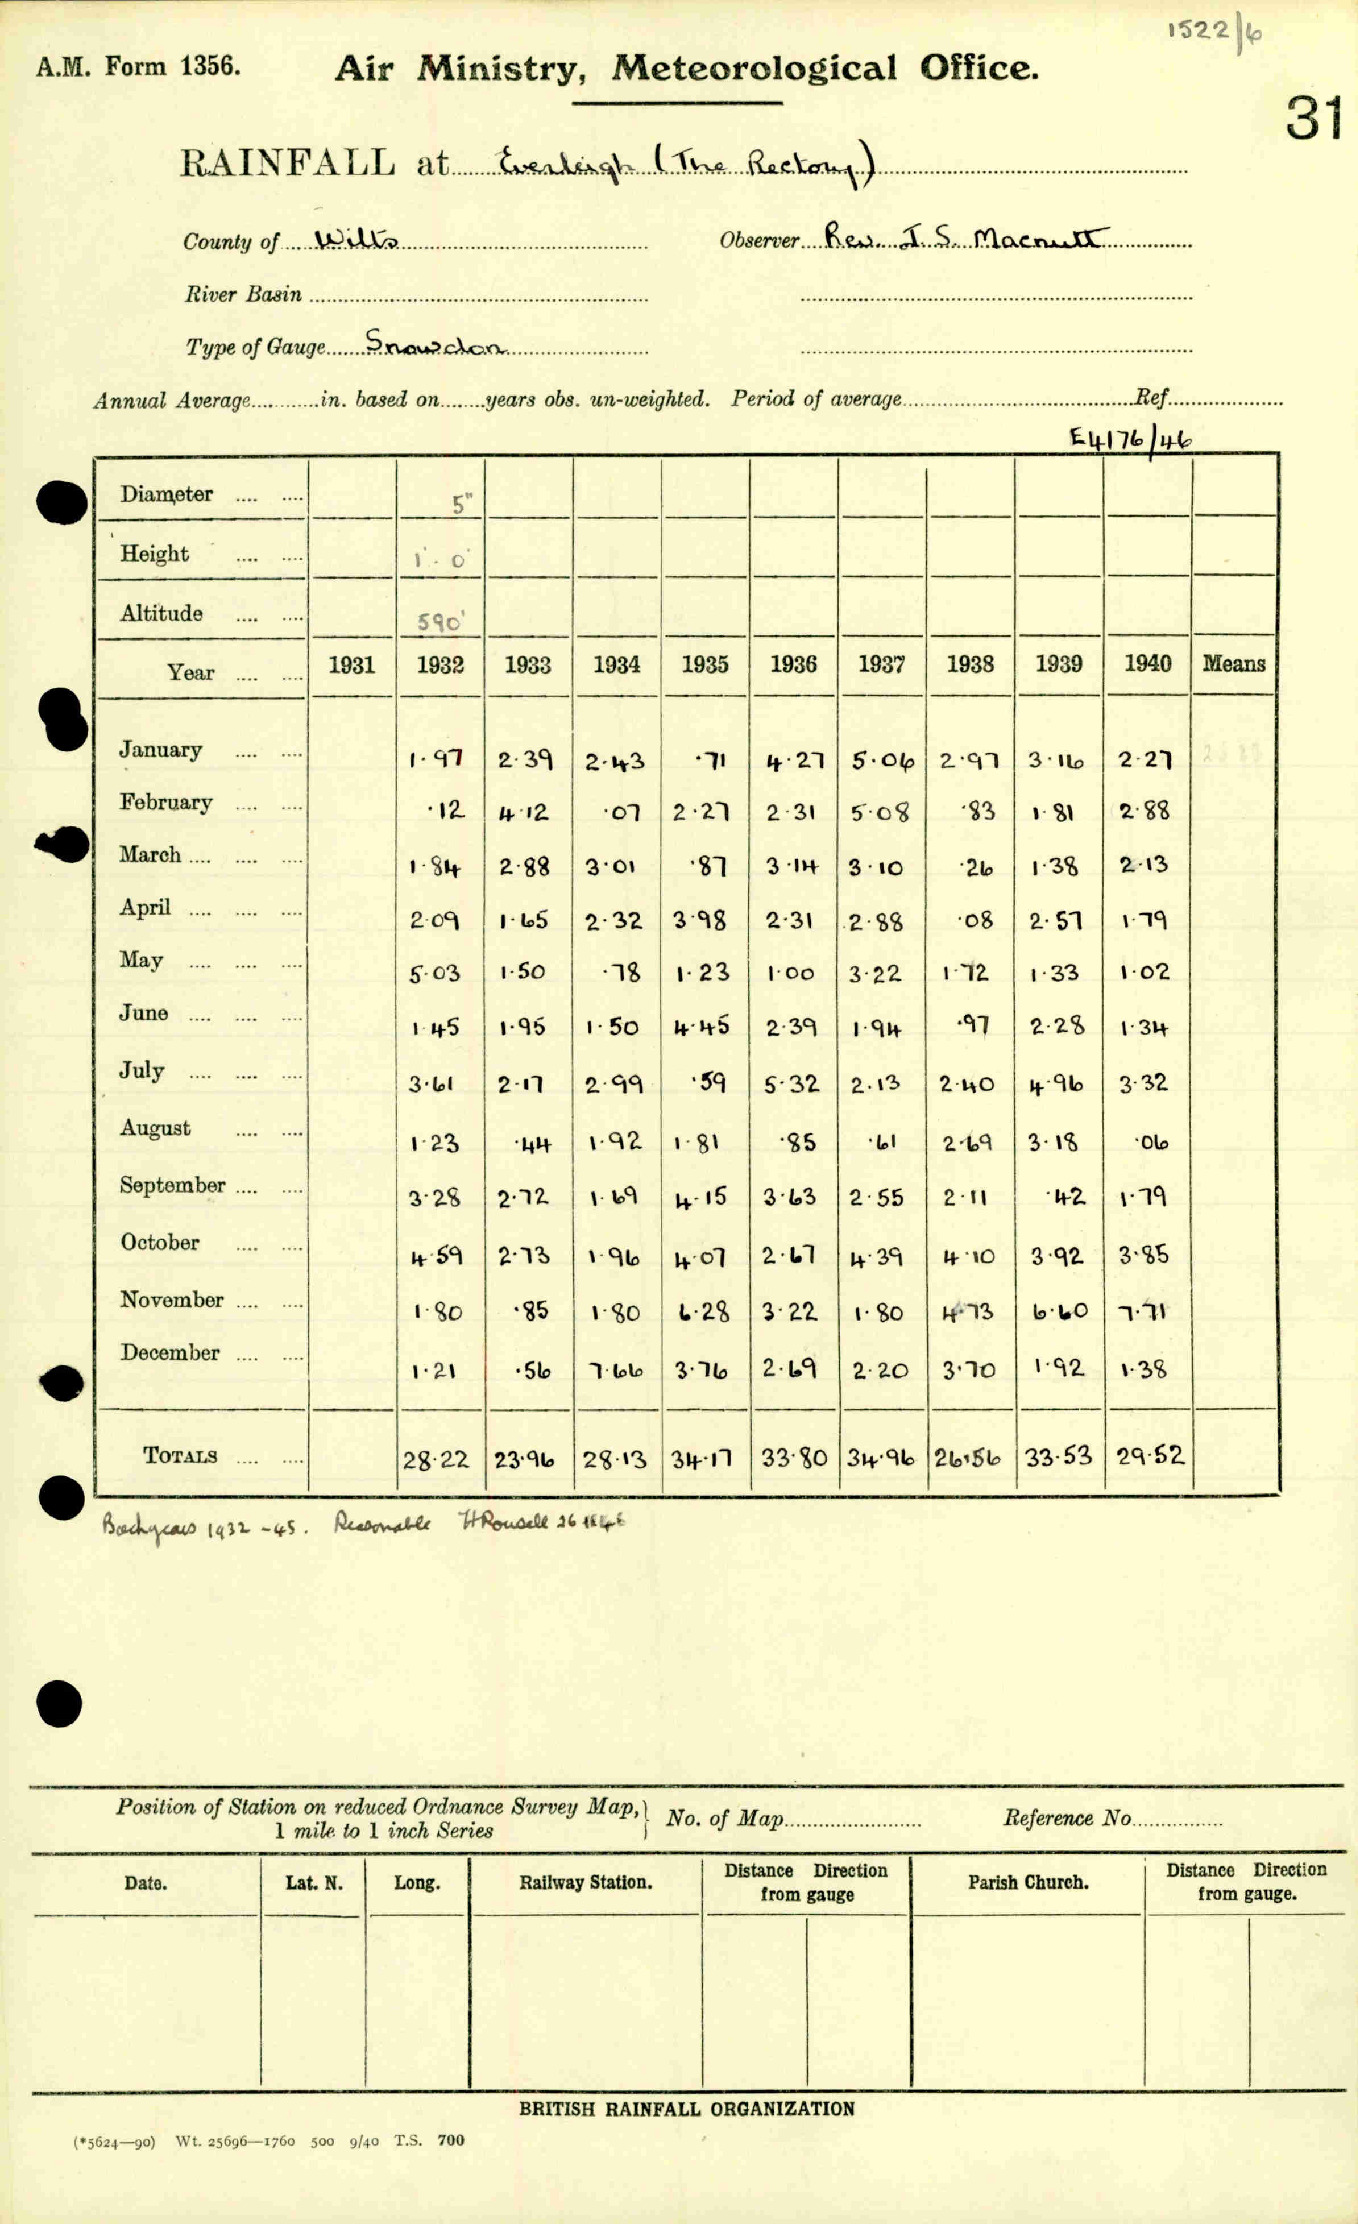 1522/6
A.M. Form 1356. Air Ministry, Meteorological Office.
31
RAINFALL at Everleigh (The Rectory)
County of Wilts Observer Rev. J. S. Macnutt
River Basin
Type of Gauge Snowdon
Annual Average in. based on years obs. un-weighted. Period of average Ref.
E4176/46
Diameter 5"
Height 1'-0"
Altitude 590'
Year 1931 1932 1933 1934 1935 1936 1937 1938 1939 1940 Means
January 1.97 2.39 2.43 .71 4.27 5.06 2.97 3.16 2.27
February .12 4.12 .07 2.27 2.31 5.08 .83 1.81 2.88
March 1.84 2.88 3.01 .87 3.14 3.10 .26 1.38 2.13
April 2.09 1.65 2.32 3.98 2.31 2.88 .08 2.57 1.79
May 5.03 1.50 .78 1.23 1.00 3.22 1.72 1.33 1.02
June 1.45 1.95 1.50 4.45 2.39 1.94 .97 2.28 1.34
July 3.61 2.17 2.99 .59 5.32 2.13 2.40 4.96 3.32
August 1.23 .44 1.92 1.81 .85 .61 2.69 3.18 .06
September 3.28 2.72 1.69 4.15 3.63 2.55 2.11 .42 1.79
October 4.59 2.73 1.96 4.07 2.67 4.39 4.10 3.92 3.85
November 1.80 .85 1.80 6.28 3.22 1.80 4.73 6.60 7.71
December 1.21 .56 7.66 3.76 2.69 2.20 3.70 1.92 1.38
TOTALS 28.22 23.96 28.13 34.17 33.80 34.96 26.56 33.53 29.52
1932-45. Reasonable
Position of Station on reduced Ordnance Survey Map, No. of Map Reference No.
1 mile to 1 inch Series
Date. Lat. N. Long. Railway Station. Distance Direction from gauge Parish Church. Distance Direction from gauge.
BRITISH RAINFALL ORGANIZATION
(*5624—90) Wt. 25696—1760 500 9/40 T.S. 700